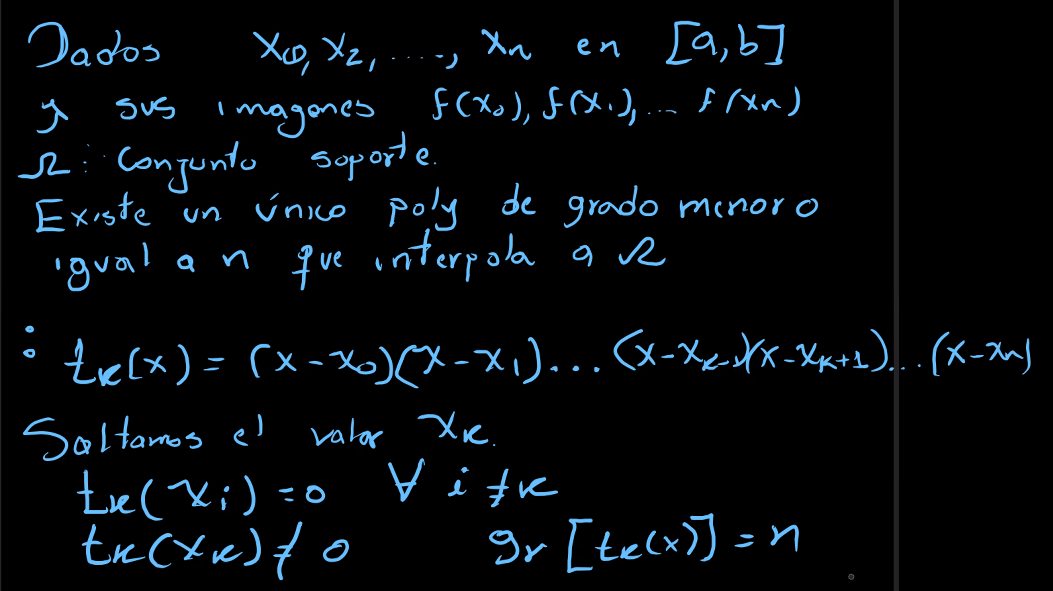 Dados x₀, x₂, ...., xₙ en [a,b]
y sus imagenes f(x₀), f(x₁), ... f(xₙ)
Ω: Conjunto soporte.
Existe un único poly de grado menor o
igual a n que interpola a Ω
: tₖ(x) = (x-x₀)(x-x₁)...(x-xₖ₋₁)(x-xₖ₊₁)...(x-xₙ)
Saltamos el valor xₖ.
tₖ(xᵢ) = 0 ∀ i ≠ k
tₖ(xₖ) ≠ 0 gr[tₖ(x)] = n